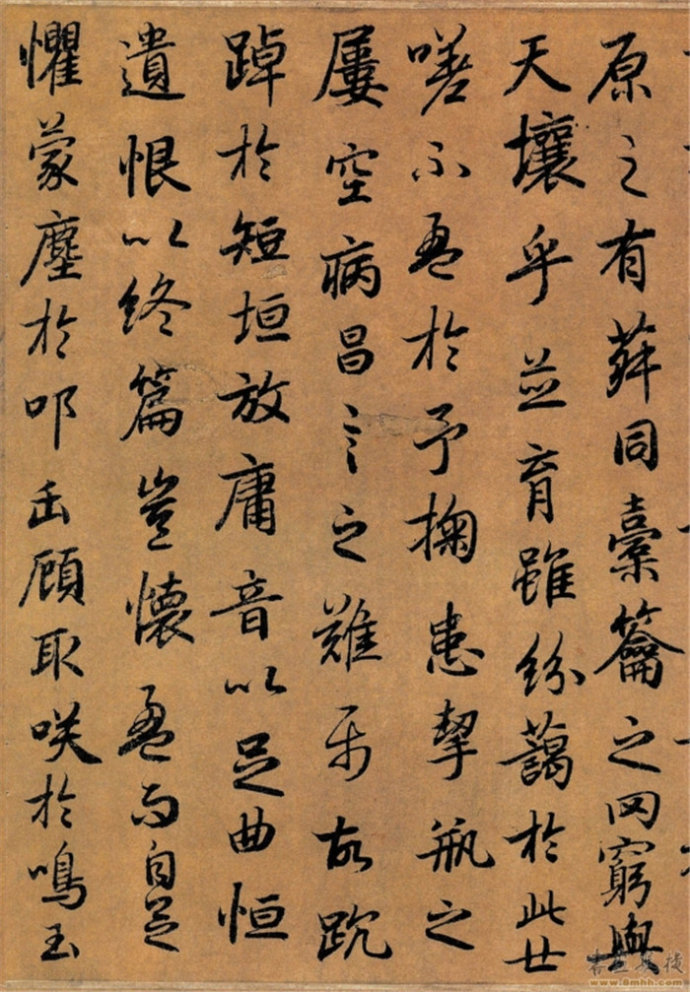 原之有菽同橐籥之罔窮與
天壤乎並育雖紛藹於此世
嗟不盈於予掬患挈瓶之
屢空病昌言之難屬故踸
踔於短垣放庸音以足曲恒
遺恨以終篇豈懷盈而自足
懼蒙塵於叩缶顧取咲於鳴玉
www.8mhh.com